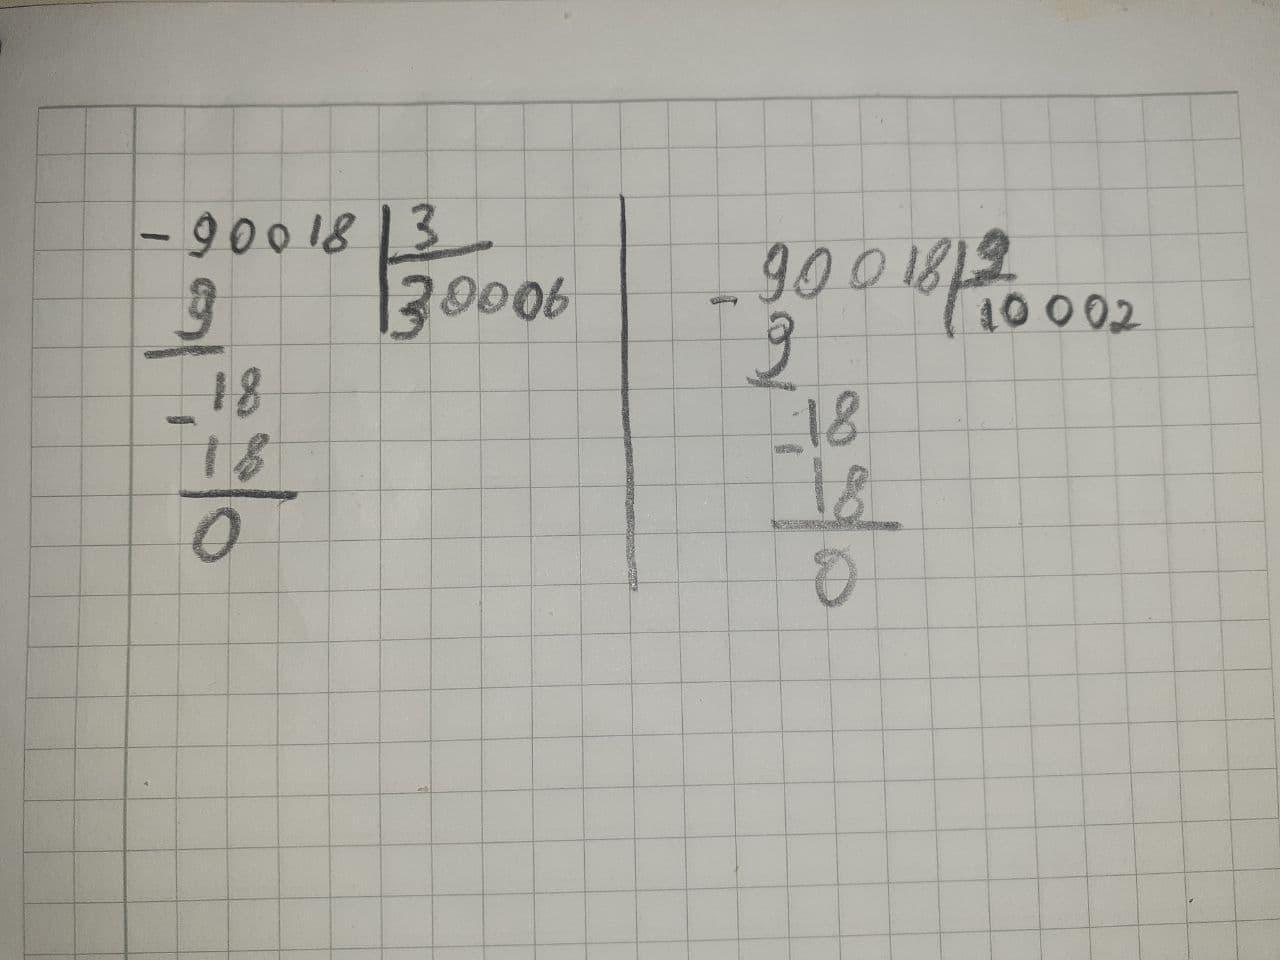 - 90018 | 3
9 30006
- 18
18
0
- 90018 | 9
9 10002
- 18
18
0